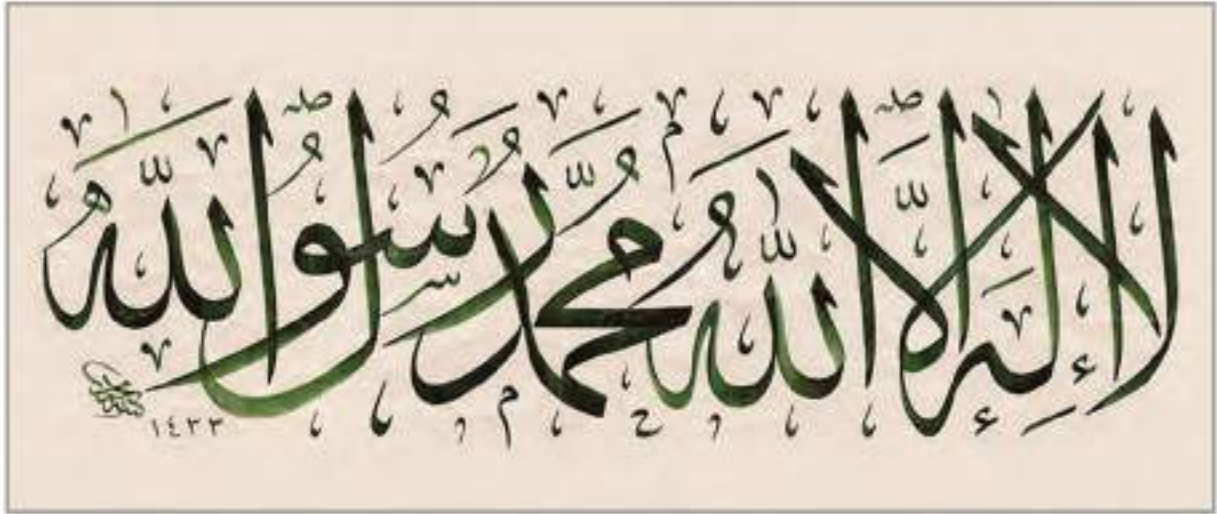 لَا إِلٰهَ إِلَّا اللّٰهُ مُحَمَّدٌ رَسُولُ اللّٰهِ
١٤٣٣